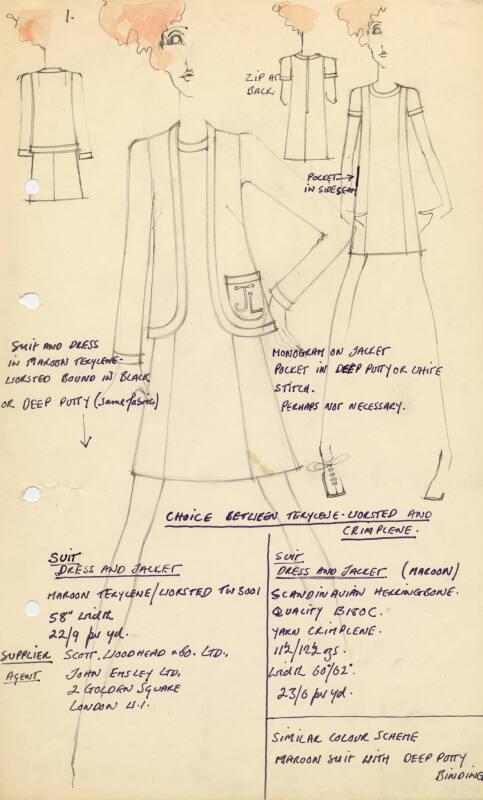 1.
ZIP AT
BACK.
POCKET→
IN SIDESEAM
JL
SUIT AND DRESS
IN MAROON TERYLENE-
WORSTED BOUND IN BLACK
OR DEEP PUTTY (same fabric)
MONOGRAM ON JACKET
POCKET IN DEEP PUTTY OR WHITE
STITCH.
PERHAPS NOT NECESSARY.
CHOICE BETWEEN TERYLENE-WORSTED AND
CRIMPLENE.
SUIT
DRESS AND JACKET
MAROON TERYLENE/WORSTED TW3001
58" width
22/9 per yd.
SUPPLIER SCOTT, WOODHEAD & CO. LTD.,
AGENT JOHN EMSLEY LTD,
2 GOLDEN SQUARE
LONDON W.1.
SUIT
DRESS AND JACKET (MAROON)
SCANDINAVIAN HERRINGBONE.
QUALITY B180C.
YARN CRIMPLENE.
11½/12½ ozs.
Width 60"/62".
23/6 per yd.
SIMILAR COLOUR SCHEME
MAROON SUIT WITH DEEP PUTTY
BINDING